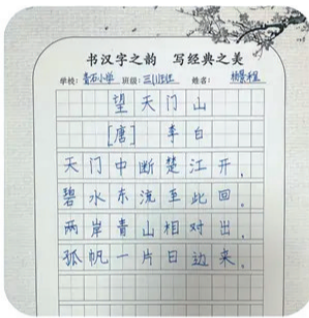 书汉字之韵 写经典之美
学校：青石小学 班级：三（1）班 姓名：
望天门山
[唐] 李白
天门中断楚江开，
碧水东流至此回。
两岸青山相对出，
孤帆一片日边来。